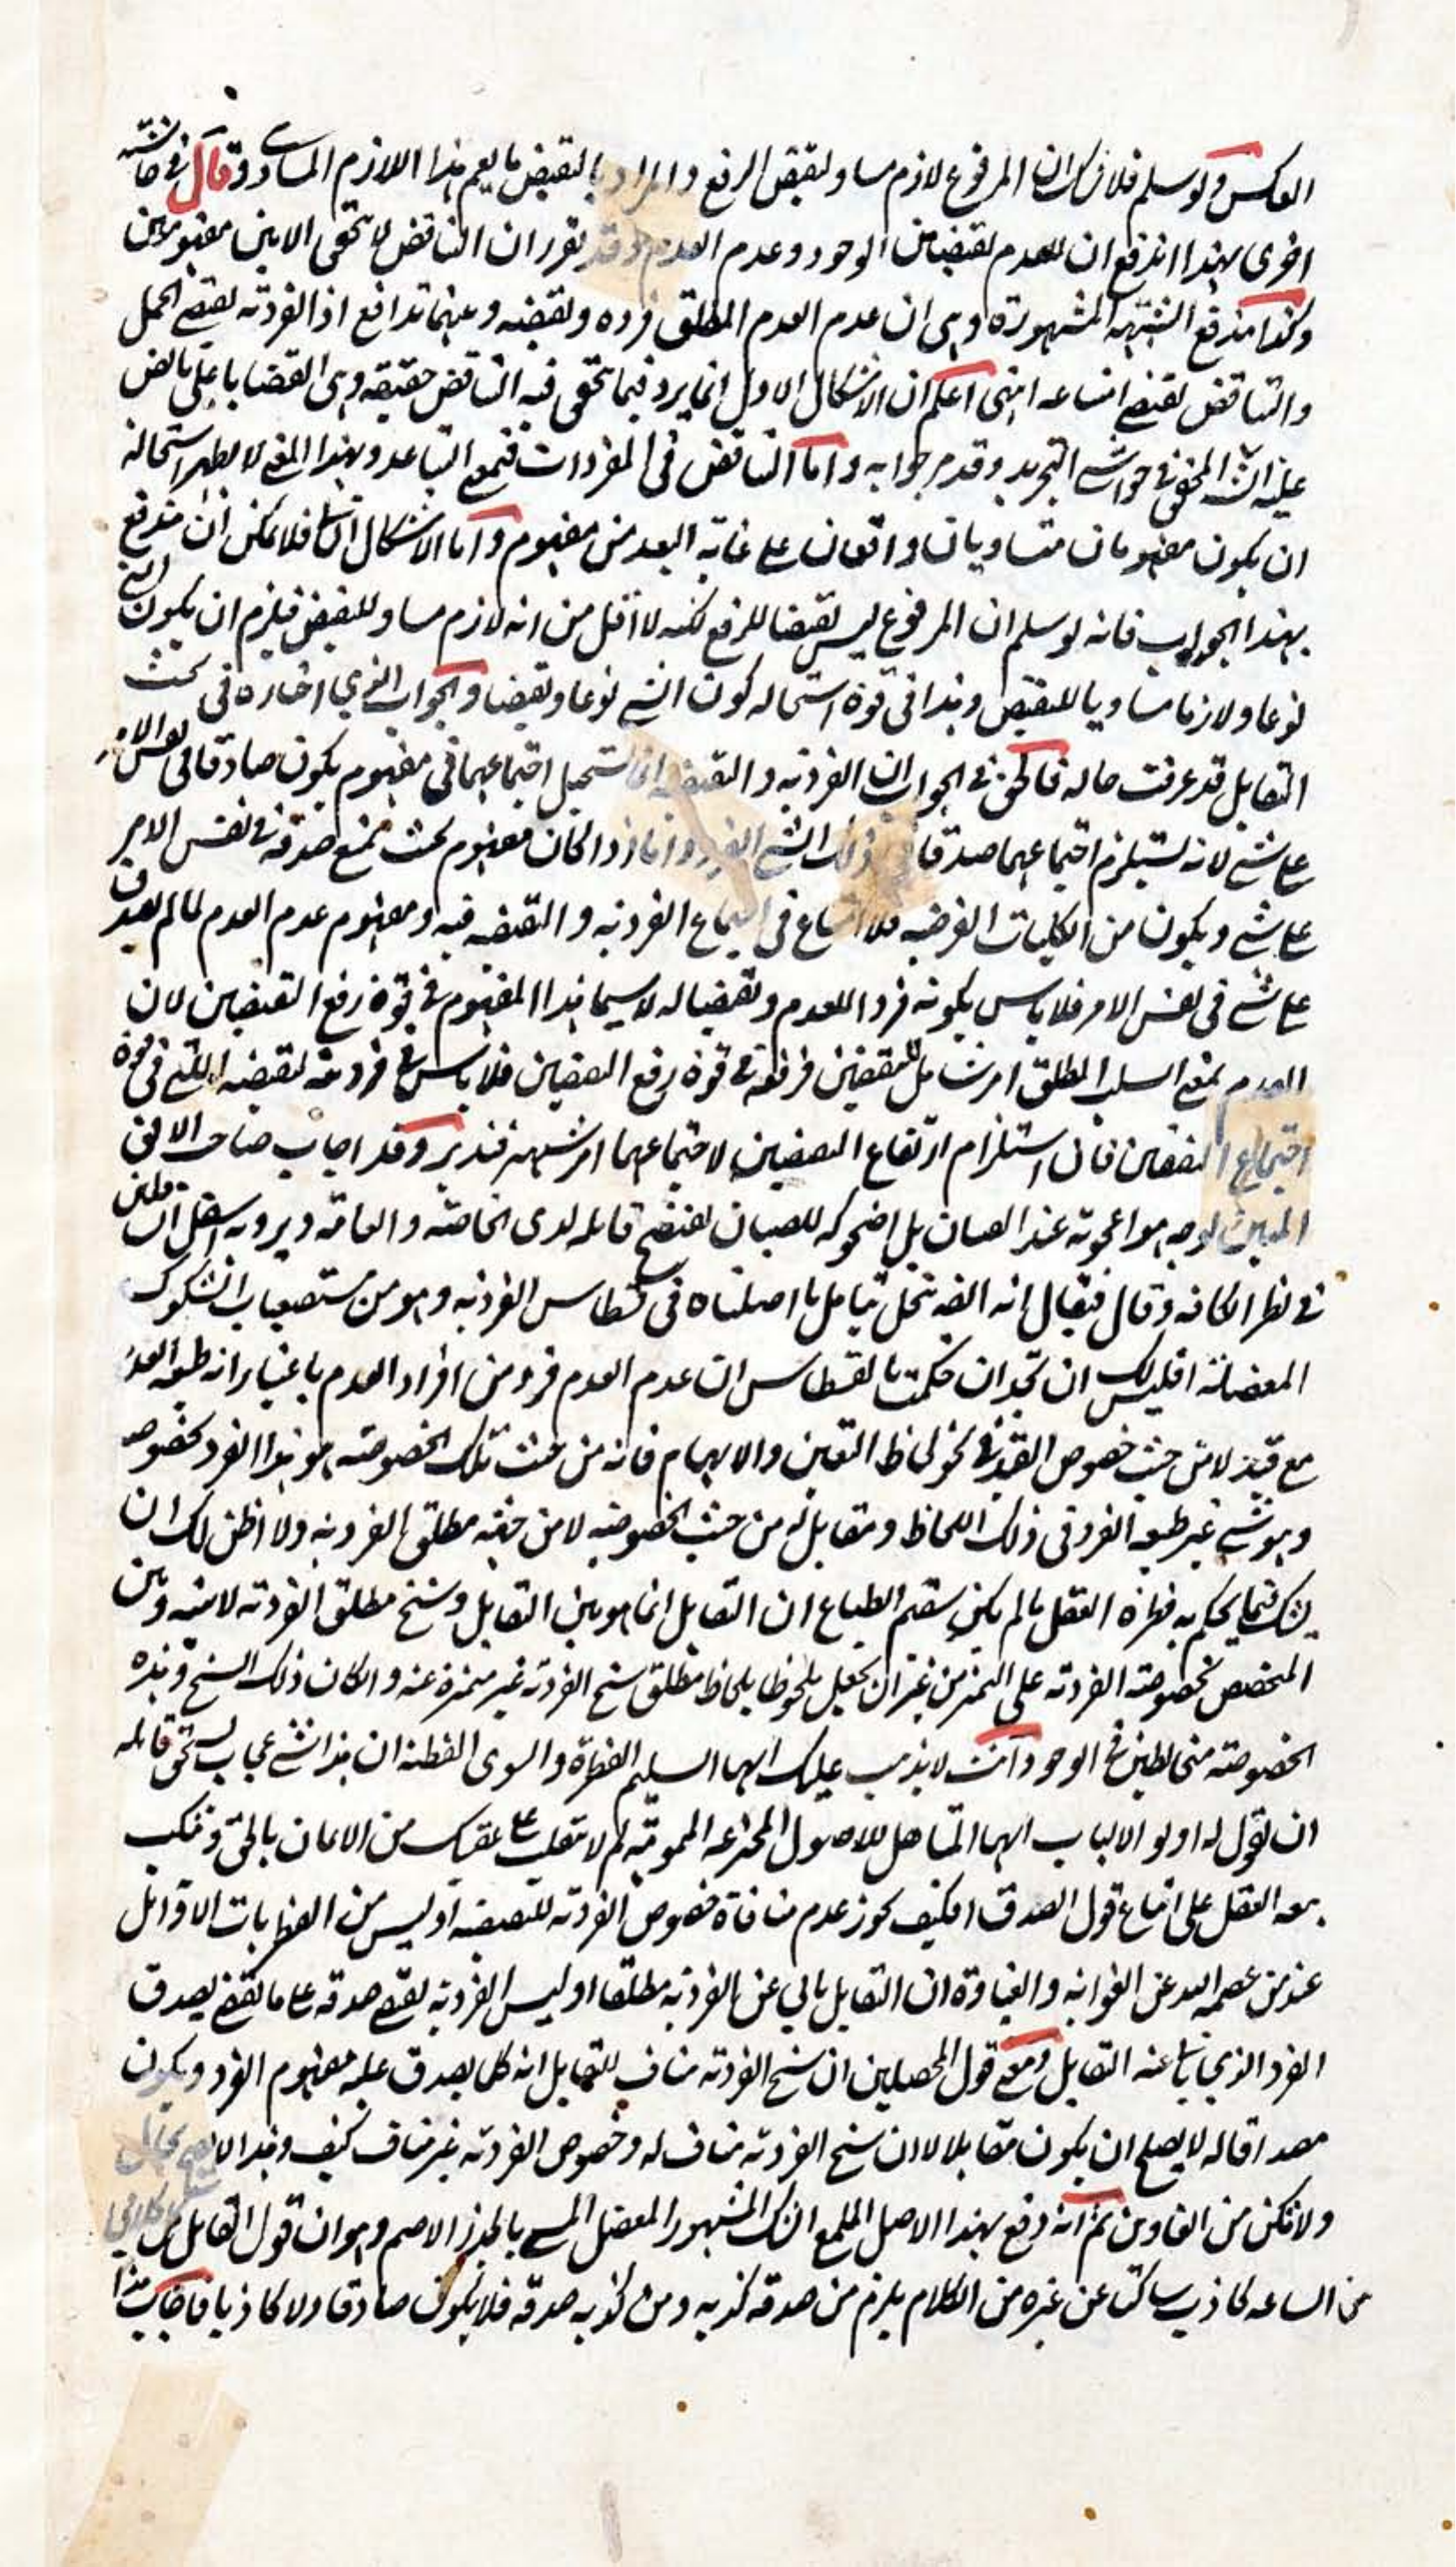 العكس ولو سلم فلا شك ان المرفوع لازم مساو لنقيض الرفع والمراد بالنقيض ما يعم هذا اللازم المساوي وقال في حاشية
اخرى بهذا اندفع ان للعدم نقيضين الوجود وعدم العدم وقد تقرر ان التناقض لا يتحقق الا بين مفهومين
وكذا يندفع الشبهة المشهورة وهى ان عدم العدم المطلق فرده ونقيضه وبينهما تدافع اذ الفردية يقتضي الحمل
والتناقض يقتضي امتناعه انتهى اعلم ان الاشكال الاول انما يرد فيما يتحقق فيه التناقض حقيقة وهى القضايا على ما نص
عليه المحقق في حواشي التجريد وقد مر جوابه واما التناقض في المفردات فبمعنى التباعد وبهذا المعنى لا يظهر استحالة
ان يكون مفهومان متساويان واقعان على غاية البعد من مفهوم واما الاشكال الثاني فلا يمكن ان يندفع
بهذا الجواب فانه لو سلم ان المرفوع ليس نقيضا للرفع لكنه لا اقل من انه لازم مساو للنقيض فيلزم ان يكون الشئ
نوعا ولازما مساويا للنقيض وهذا في قوة استحالة كون الشئ نوعا ونقيضا والجواب الذي اختاره في بحث
التقابل قد عرفت حاله فالحق في الجواب ان الفردية والنقيضية انما يستحيل اجتماعهما في مفهوم يكون صادقا في نفس الامر
على شئ لانه يستلزم اجتماعهما صدقا في ذلك الشئ الفرد واما اذا كان مفهوم بحيث يمتنع صدقه في نفس الامر
على شئ ويكون من الكليات الفرضية فلا امتناع في اجتماع الفردية والنقيضية فيه ومفهوم عدم العدم لما لم يصدق
على شئ في نفس الامر فلا باس بكونه فردا للعدم ونقيضا له لا سيما هذا المفهوم في قوة رفع النقيضين لان
العدم بمعنى السلب المطلق امر شامل للنقيضين فرفعه في قوة رفع النقيضين فلا باس في فردية نقيضه التي في قوة
اجتماع النقيضين فان استلزام ارتفاع النقيضين لاجتماعهما امر شهير فتدبر وقد اجاب صاحب الافق
المبين بوجه هو اعجوبة عند العيان بل اضحوكة للصبيان يفتضح قائله لدى الخاصة والعامة ويرويه اسفل السافلين
في نظر الكافة وقال فيقال انه ايضا ينحل بتامل ما اصلناه في قسطاس الفردية وهو من مستصعبات الشكوك
المعضلة افليس لك ان تجد ان حكمت بالقسطاس ان عدم العدم فرد من افراد العدم باعتبار انه طبيعة العدم
مع قيد لا من حيث خصوص القيد في نحو لحاظ التعين والابهام فانه من حيث تلك الخصوصية هو هذا الفرد بخصوصه
وهو شئ غير طبيعة الفرد في ذلك اللحاظ ومقابل له من حيث الخصوصية لا من حيثية مطلق الفردية ولا اظن لك ان
يشك فيما يحكم به فطرة العقل ما لم يكن سقيم الطباع ان التقابل انما هو بين التقابل وسنخ مطلق الفردية لا بينه وبين
المخصص بخصوصية الفردية على التميز من غير ان يجعل ملحوظا بلحاظ مطلق سنخ الفردية غير متميزة عنه وان كان ذلك السنخ وهذه
الخصوصية متخالطين في الوجود وانت لا يذهب عليك ايها السليم الفطرة والسوى الفطنة ان هذا شئ عجاب يستحق قائله
ان يقول له اولو الالباب ايها المتاهل للاصول المخترعة المموهة لم لا تنقلب على عقبك من الاعان بالحق وتنكب
معه العقل على اتباع قول الصدق افكيف يجوز عدم منافاة خصوص الفردية للنقيضية اوليس من الفطريات الاوائل
عند من عصمه الله عن الغواية والغباوة ان التقابل يابى عن الفردية مطلقا اوليس الفردية يقتضي صدقه على ما يقتضي يصدق
الفرد الذي ياباه عنه التقابل ومعنى قول المحصلين ان سنخ الفردية مناف للتقابل انه كل ما يصدق عليه مفهوم الفرد ويكون
مصداقا له لا يصلح ان يكون مقابلا لا ان سنخ الفردية مناف له وخصوص الفردية غير مناف كيف وهذا لا
ولا تكن من الغاوين ثم انه دفع بهذا الاصل الملمع الشك المشهور المعضل المسمى بالجذر الاصم وهو ان قول القائل كل كلامي
في الساعة كاذب ساكتا عن غيره من الكلام يلزم من صدقه كذبه ومن كذبه صدقه فلا يكون صادقا ولا كاذبا فاجاب هذا